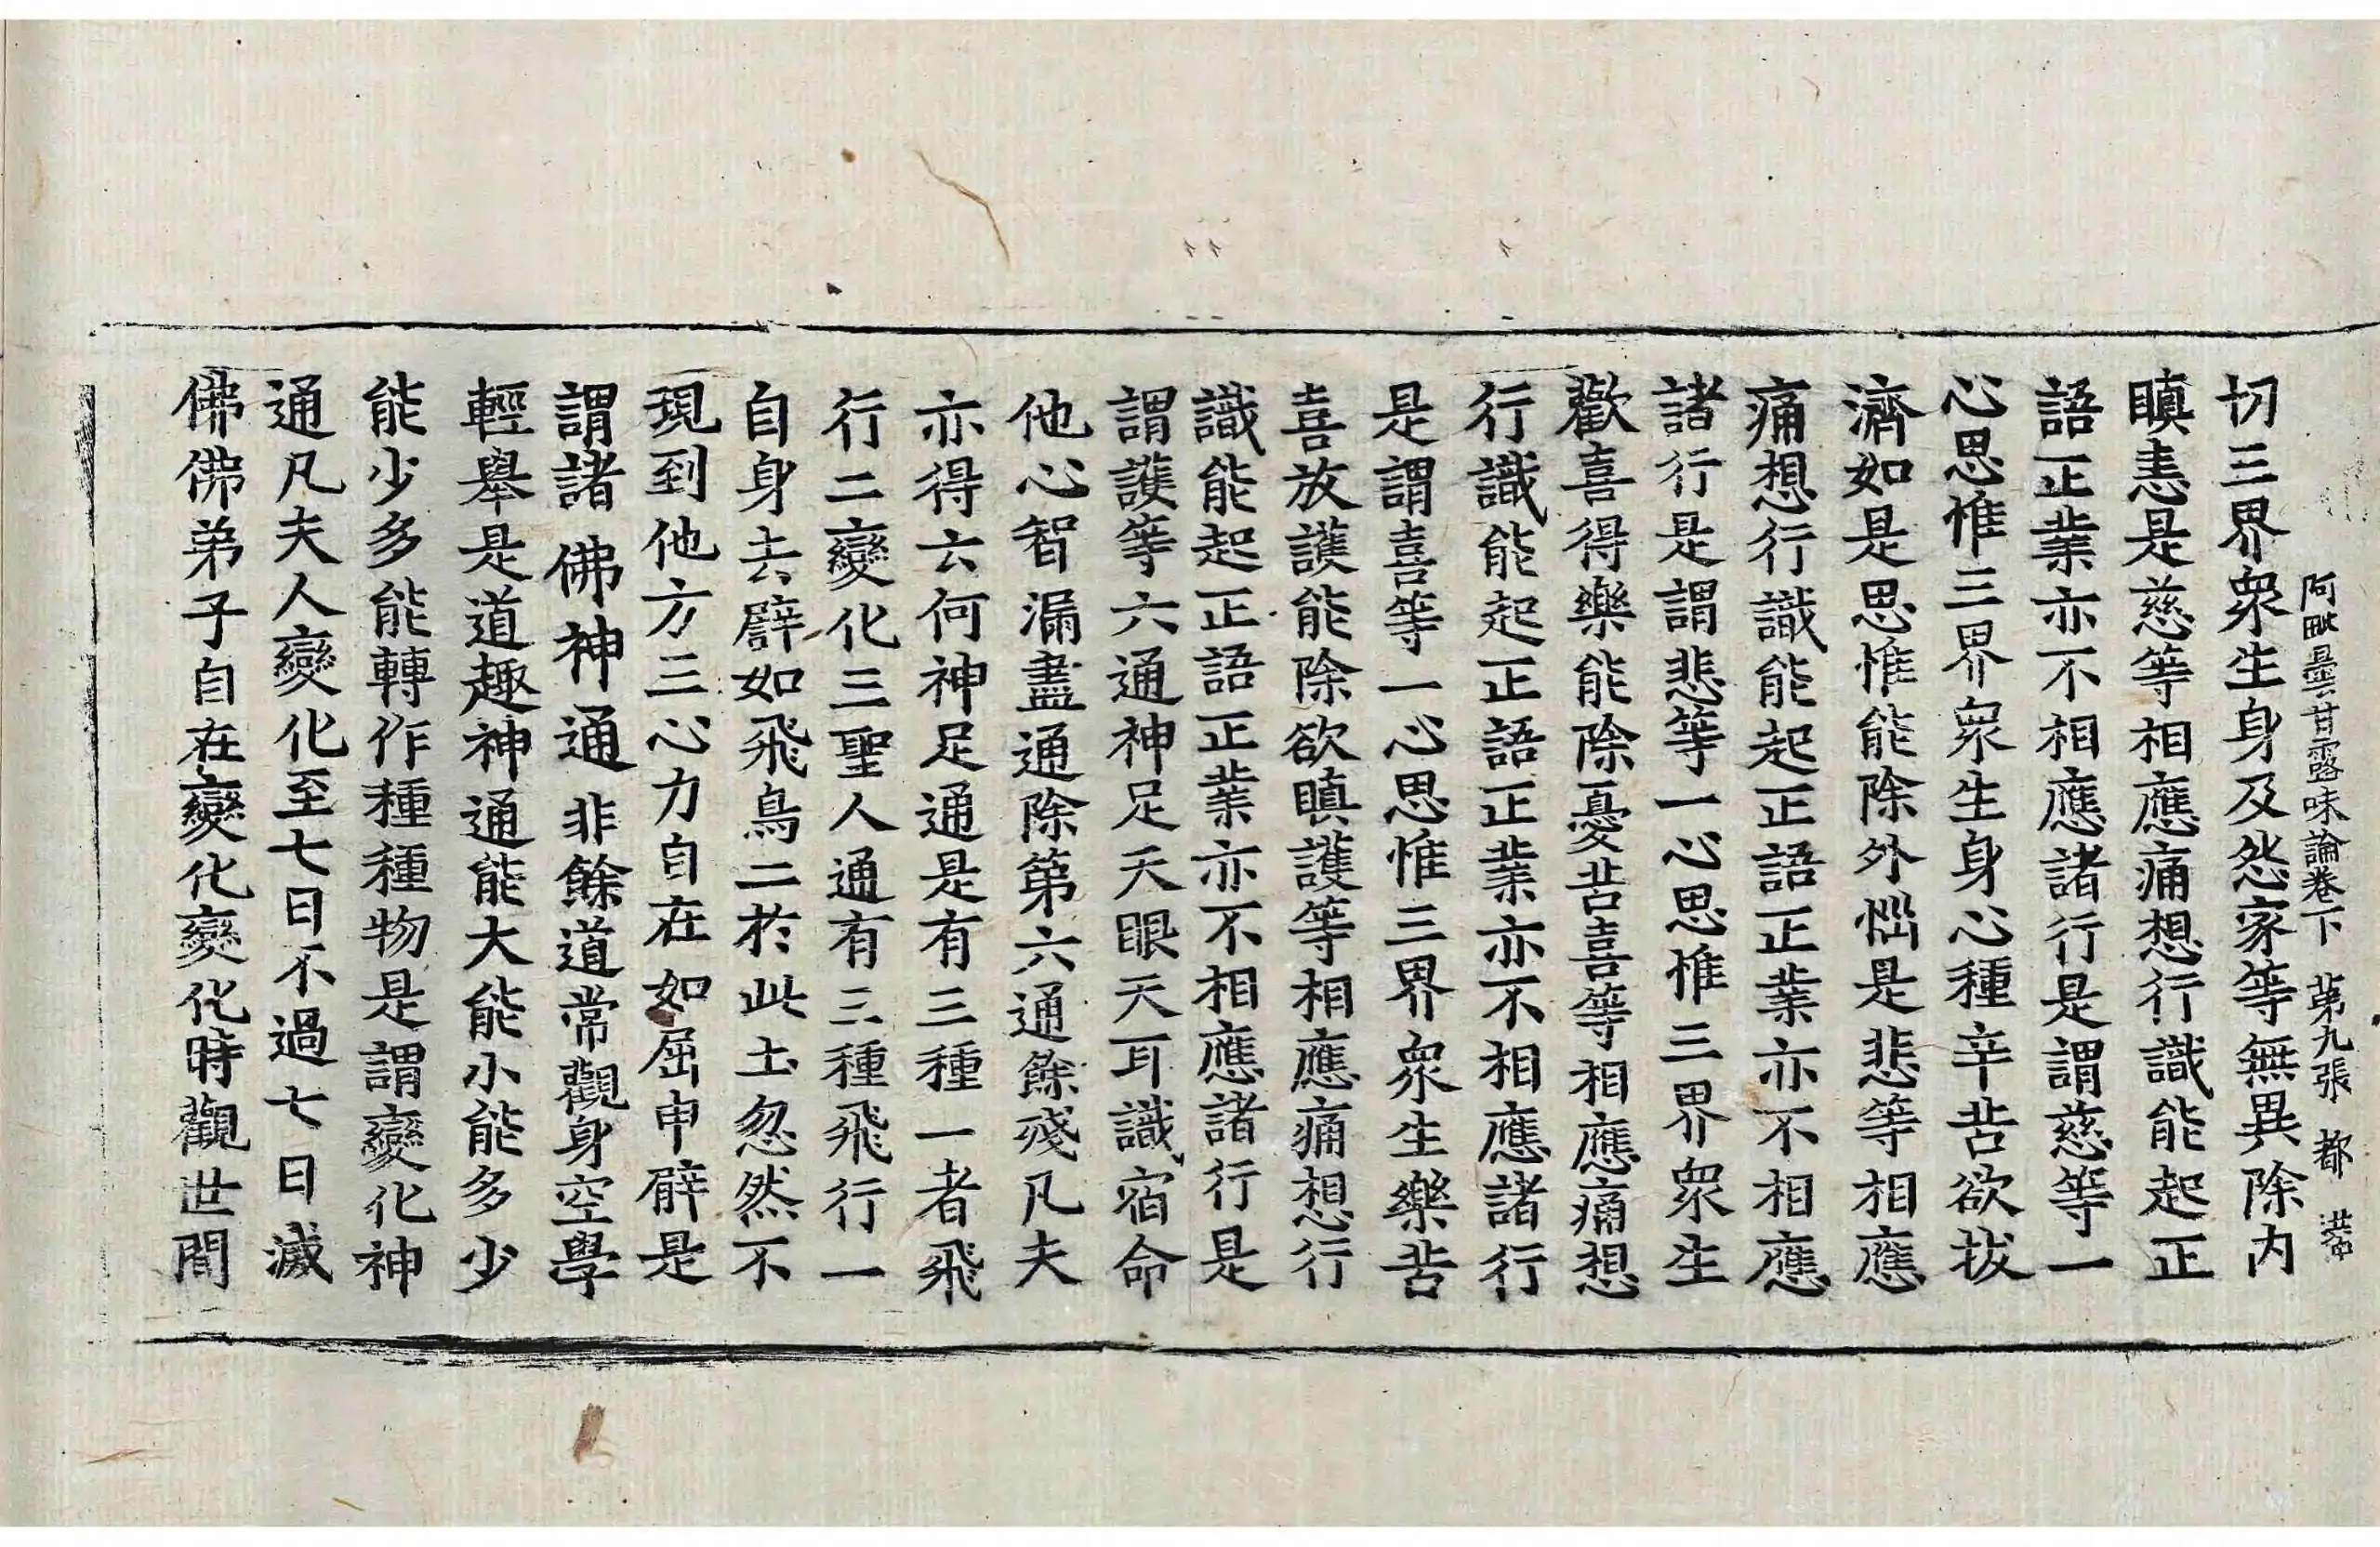 阿毗曇甘露味論卷下 第九張 都
切三界衆生身及怨家等無異除内
瞋恚是慈等相應痛想行識能起正
語正業亦不相應諸行是謂慈等一
心思惟三界衆生身心種辛苦欲拔
濟如是思惟能除外惱是悲等相應
痛想行識能起正語正業亦不相應
諸行是謂悲等一心思惟三界衆生
歡喜得樂能除憂苦喜等相應痛想
行識能起正語正業亦不相應諸行
是謂喜等一心思惟三界衆生樂苦
喜放護能除欲瞋護等相應痛想行
識能起正語正業亦不相應諸行是
謂護等六通神足天眼天耳識宿命
他心智漏盡通除第六通餘殘凡夫
亦得云何神足通是有三種一者飛
行二變化三聖人通有三種飛行一
自身去譬如飛鳥二於此土忽然不
現到他方三心力自在如屈申臂是
謂諸佛神通非餘道常觀身空學
輕舉是道趣神通能大能小能多少
能少多能轉作種種物是謂變化神
通凡夫人變化至七日不過七日滅
佛佛弟子自在變化變化時觀世間